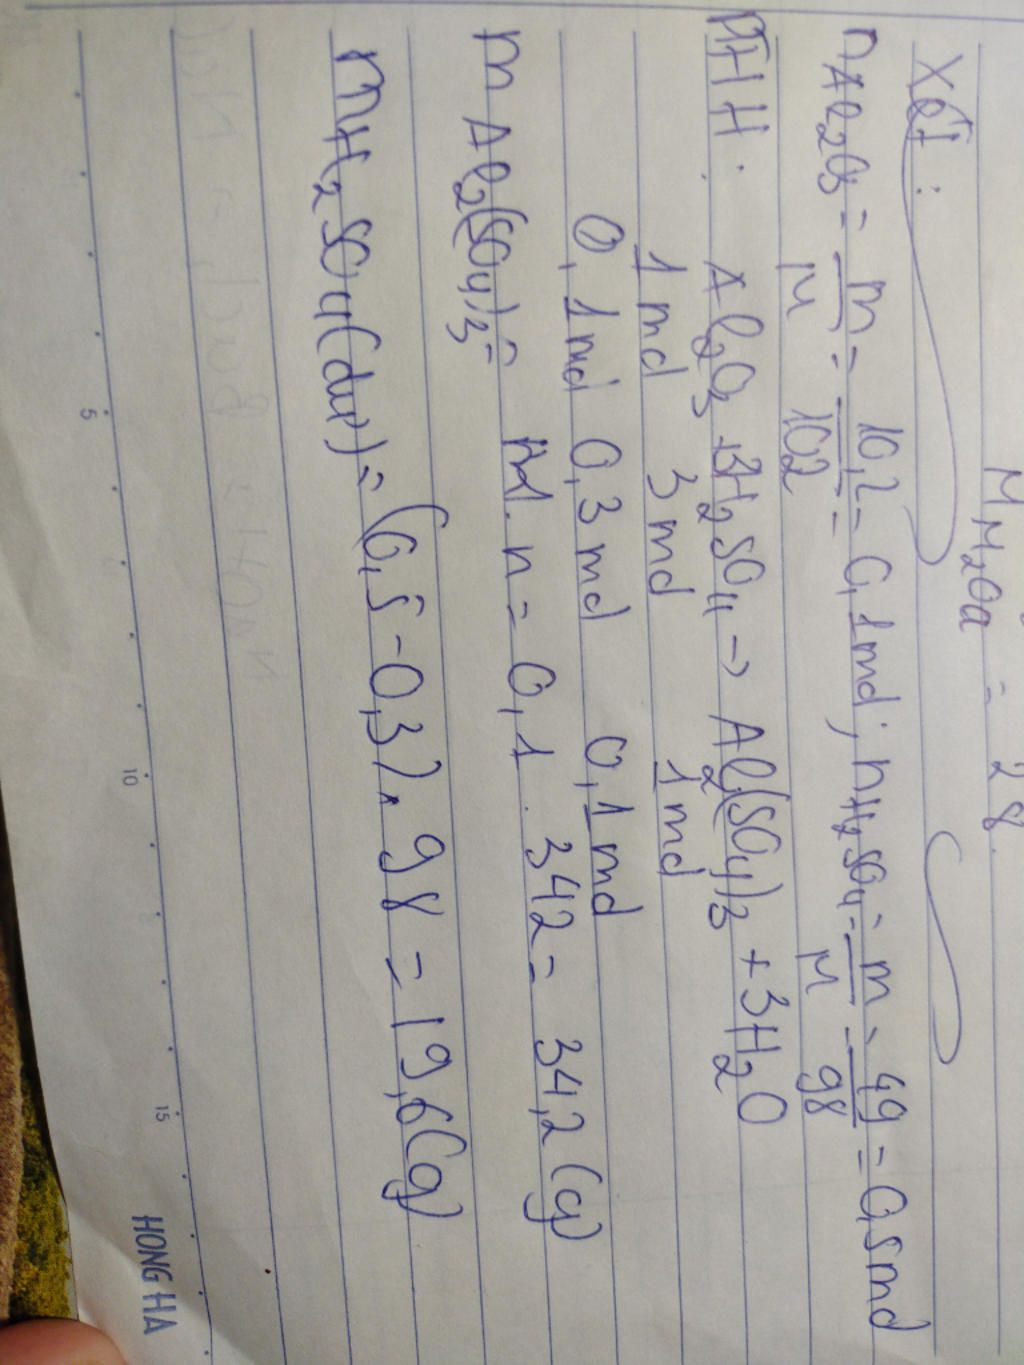 M H₂Oa = 28.
Xét:
nAl₂O₃ = m/M = 10,2/102 = 0,1md; nH₂SO₄ = m/M = 49/98 = 0,5md
PTHH: Al₂O₃ + 3H₂SO₄ → Al₂(SO₄)₃ + 3H₂O
1md 3md 1md
0,1md 0,3md 0,1md
m Al₂(SO₄)₃ = M.n = 0,1 . 342 = 34,2 (g)
mH₂SO₄(dư) = (0,5 - 0,3) . 98 = 19,6(g)
5 10 15
HONG HA